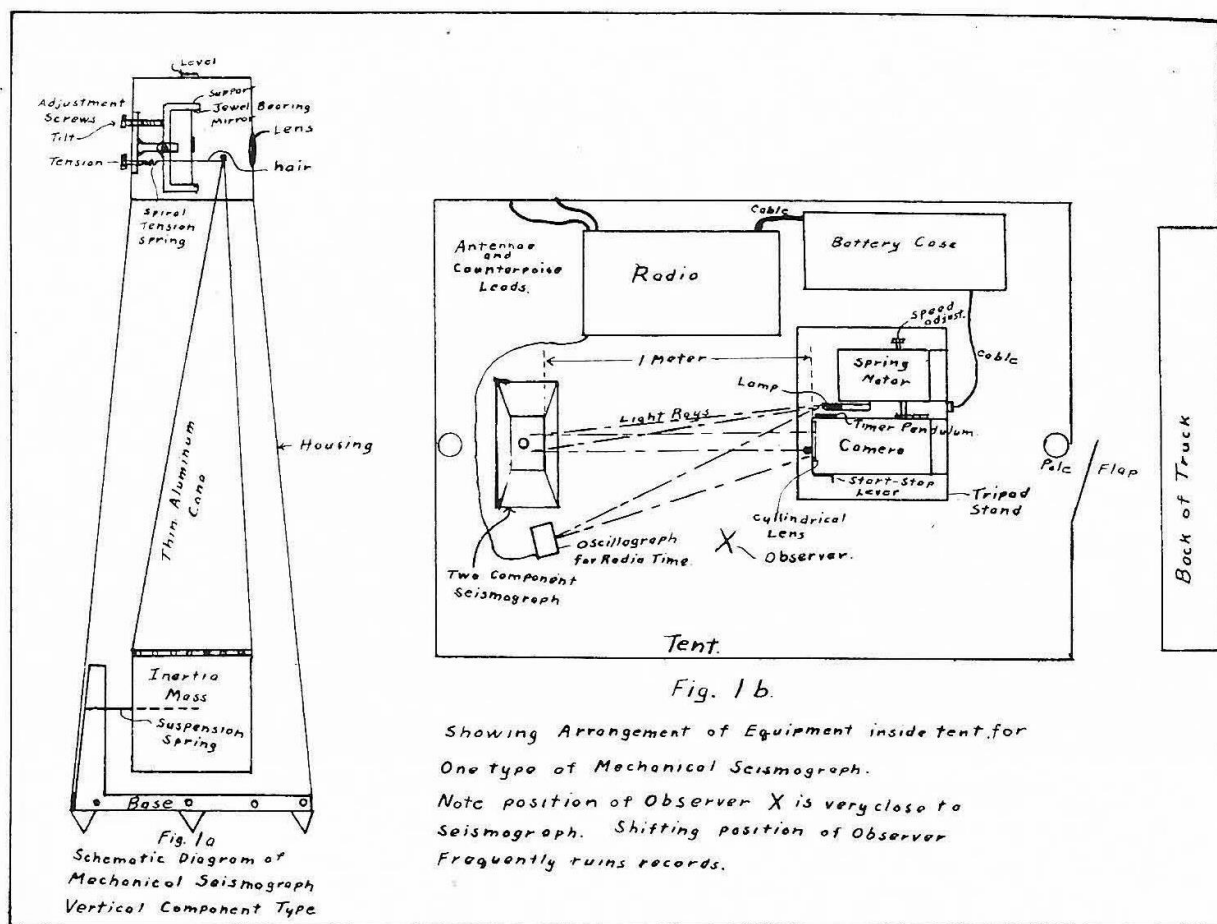 Level
Adjustment
Screws
Tilt
Tension
Support
Jewel Bearing
Mirror
Lens
hair
Spiral
Tension
Spring
Thin Aluminum
Cone
Housing
Inertia
Mass
Suspension
Spring
Base
Fig. 1a
Schematic Diagram of
Mechanical Seismograph
Vertical Component Type
Antennae
and
Counterpoise
Leads.
Radio
Cable
Battery Case
Speed
adjust.
Cable
1 Meter
Spring
Motor
Lamp
Light Rays
Timer Pendulum
Camera
Start-Stop
Lever
Pole
Flap
Tripod
Stand
Cyllindrical
Lens
Oscillograph
for Radio Time.
X
Observer.
Two Component
Seismograph
Tent.
Back of Truck
Fig. 1b.
Showing Arrangement of Equipment inside tent for
One type of Mechanical Seismograph.
Note position of Observer X is very close to
seismograph. Shifting position of Observer
Frequently ruins records.